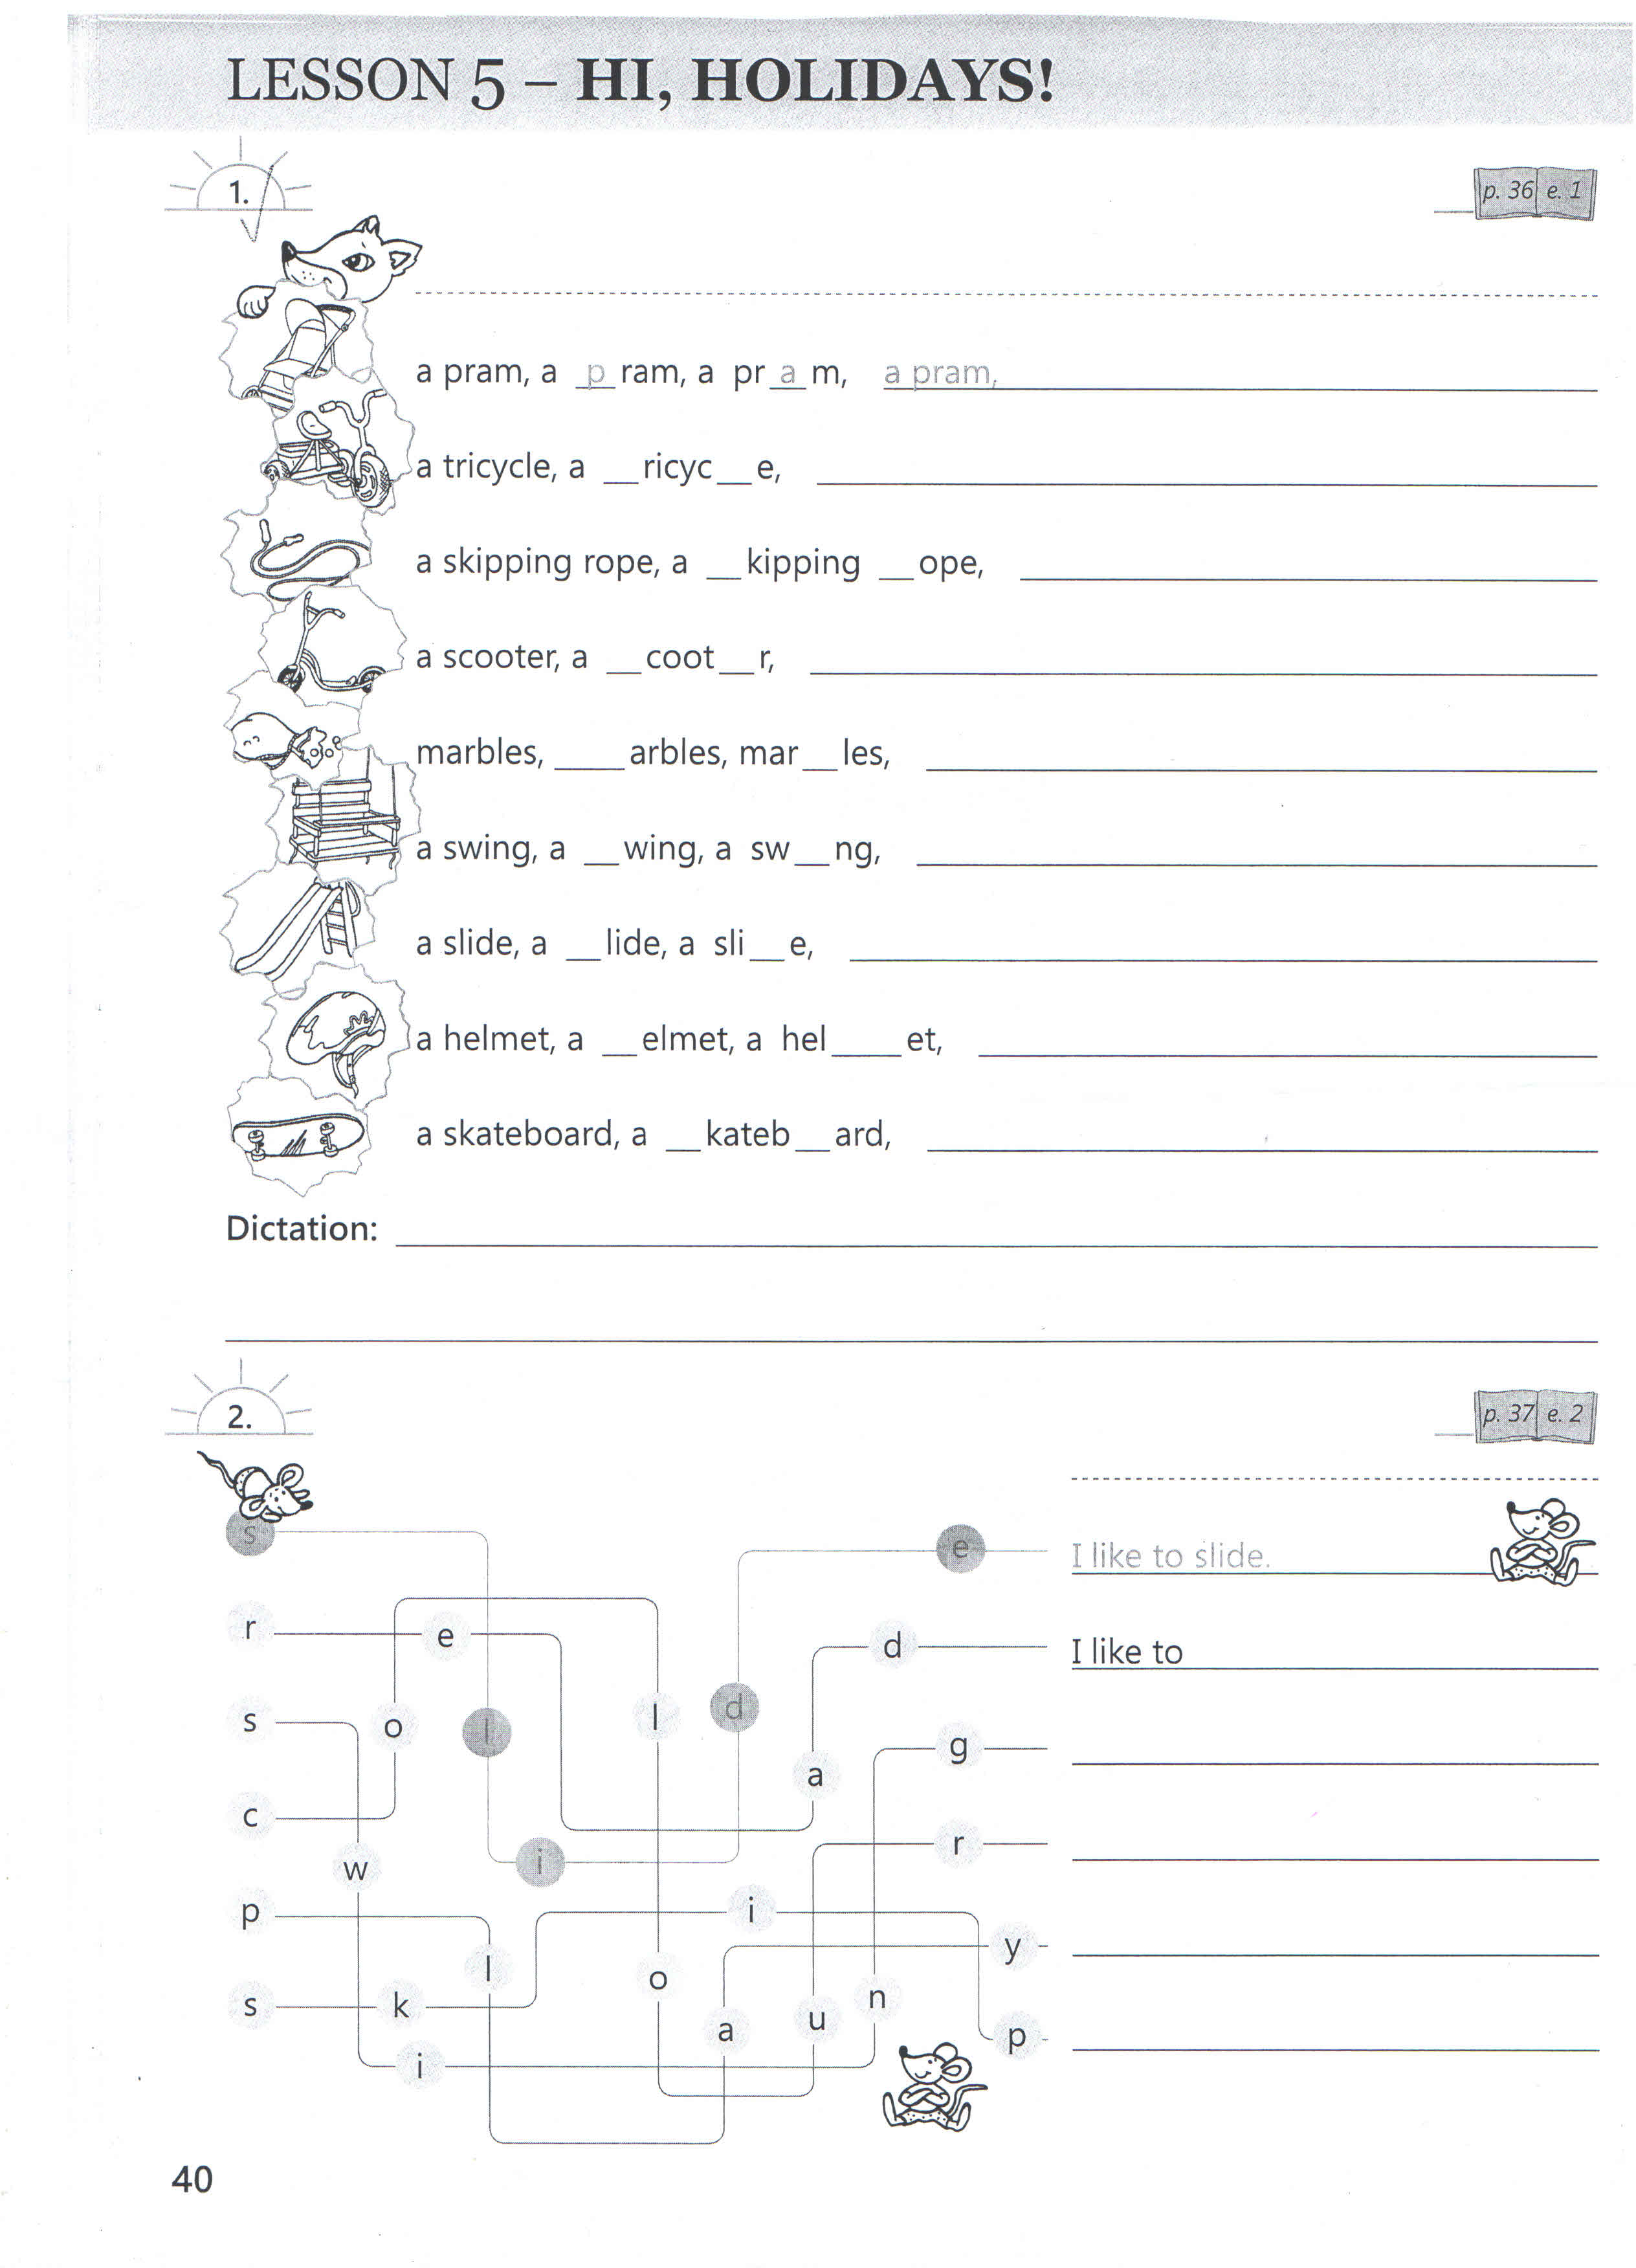 LESSON 5 – HI, HOLIDAYS!
1.
p. 36 e. 1
a pram, a p ram, a pr a m, a pram,
a tricycle, a __ricyc__e,
a skipping rope, a __kipping __ope,
a scooter, a __coot__r,
marbles, ____arbles, mar__les,
a swing, a __wing, a sw__ng,
a slide, a __lide, a sli__e,
a helmet, a __elmet, a hel____et,
a skateboard, a __kateb__ard,
Dictation:
2.
p. 37 e. 2
s e I like to slide.
r e d I like to
s o l l d g
c a r
w i
p i y
s k l o a u n p
i
40